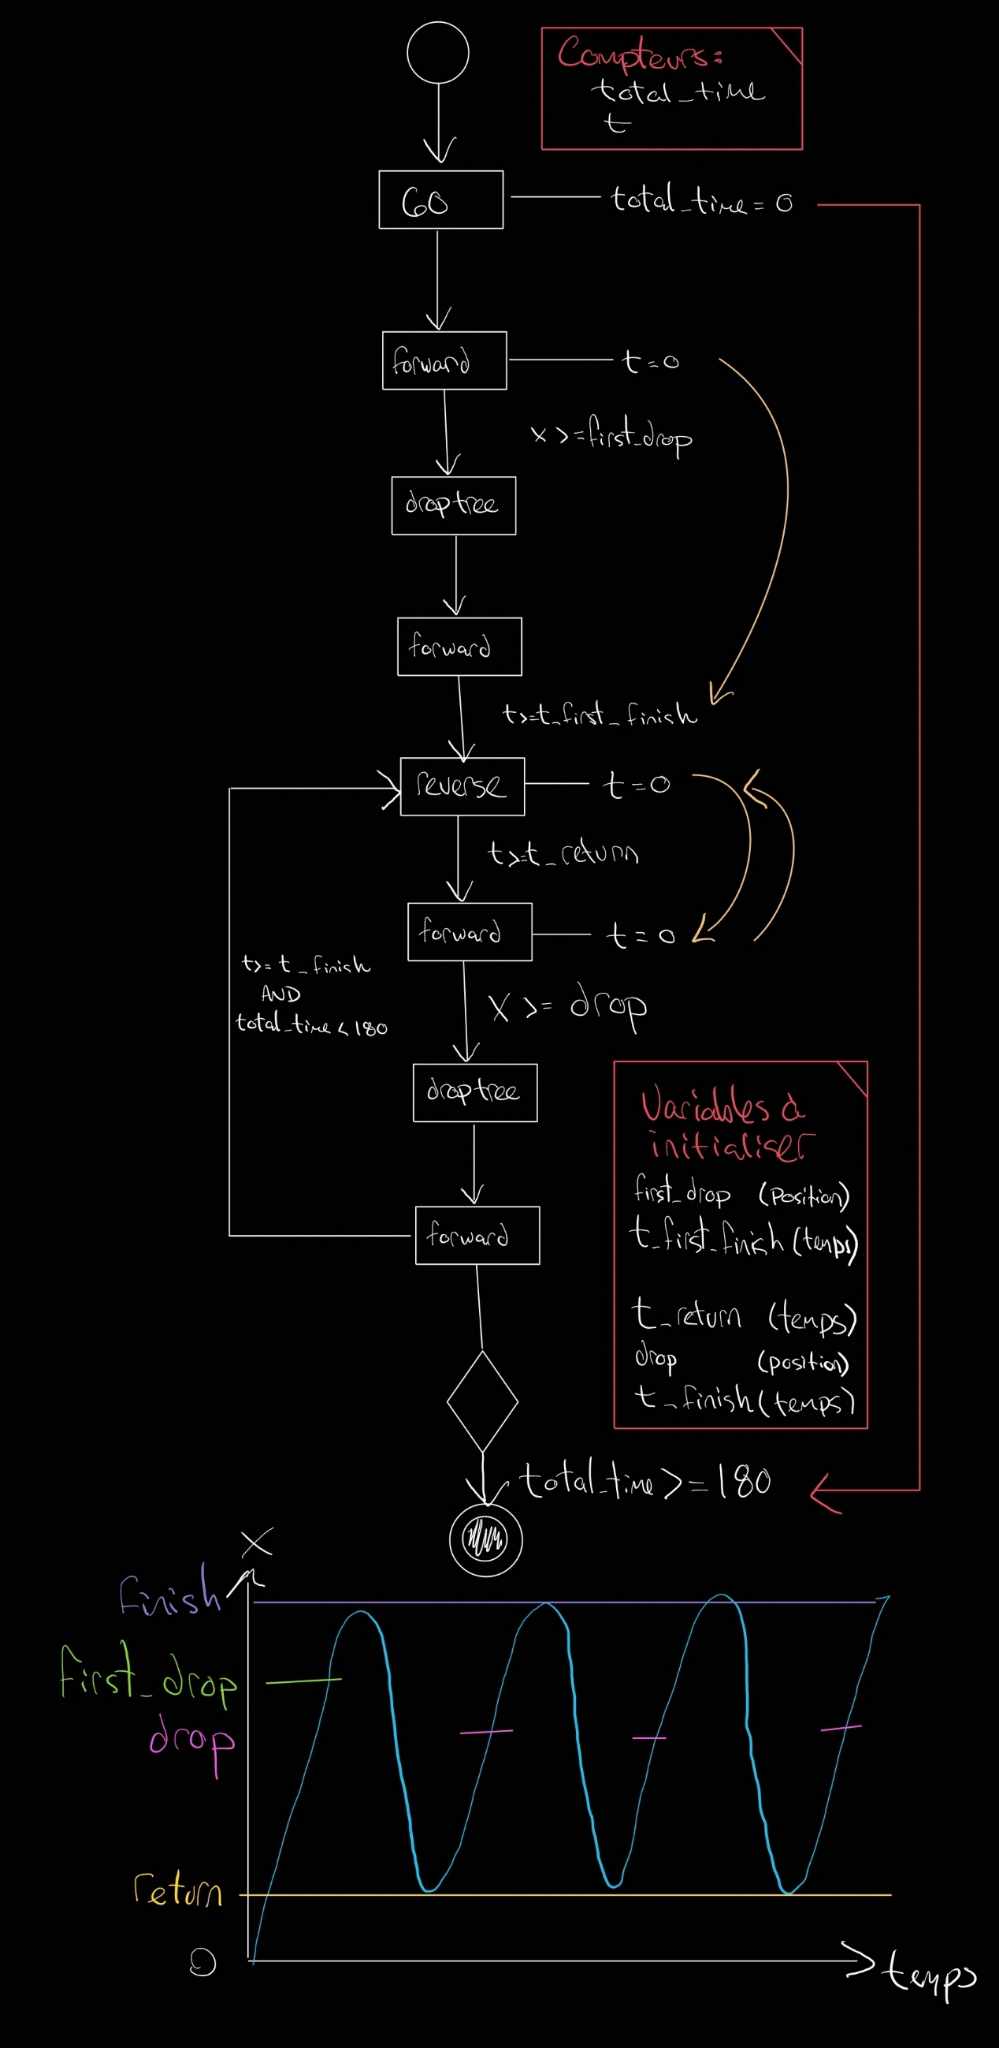 Compteurs:
total_time
t
GO
total_time = 0
forward
t=0
x >= first_drop
drop tree
forward
t>=t_first_finish
reverse
t=0
t>=t_return
forward
t=0
t>= t_finish
AND
total_time < 180
X >= drop
drop tree
forward
Variables à
initialiser
first_drop (position)
t_first_finish (temps)
t_return (temps)
drop (position)
t_finish (temps)
total_time >= 180
X
finish
first_drop
drop
return
0
temps